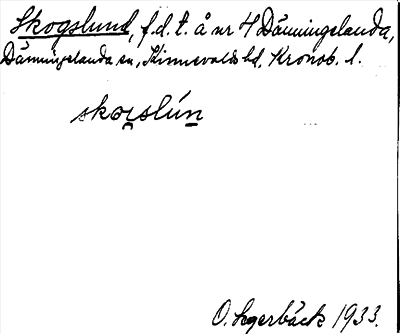 Skogslund, f.d. t. å nr 4 Dänningelanda,
Dänningelanda sn, Kinnevalds hd, Kronob. l.
skoc̮slún̠
O. Lagerbäck 1933.